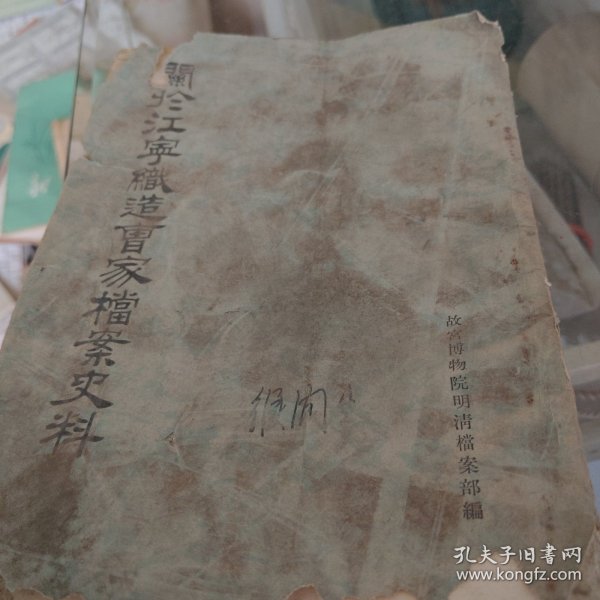 關於江寧織造曹家檔案史料
故宮博物院明清檔案部編
孔夫子旧书网
www.kongfz.com